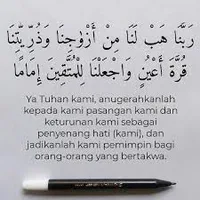 رَبَّنَا هَبْ لَنَا مِنْ أَزْوَٰجِنَا وَذُرِّيَّٰتِنَا
قُرَّةَ أَعْيُنٍ وَٱجْعَلْنَا لِلْمُتَّقِينَ إِمَامًا
Ya Tuhan kami, anugerahkanlah
kepada kami pasangan kami dan
keturunan kami sebagai
penyenang hati (kami), dan
jadikanlah kami pemimpin bagi
orang-orang yang bertakwa.